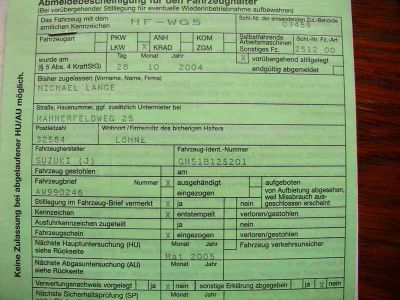 Abmeldebescheinigung für den Fahrzeughalter
(Bei vorübergehender Stillegung für eventuelle Wiederinbetriebnahme aufbewahren)
Das Fahrzeug mit dem amtlichen Kennzeichen HF-WG5
Schl-Nr. der einsendenden Zul.-Behörde
03459
Fahrzeugart PKW ANH KOM
LKW X KRAD ZGM
Selbstfahrende Arbeitsmaschinen
Sonstiges Fz.
Schl-Nr. Fz.-Art
2512 00
wurde am
(§ 5 Abs. 4 KraftStG)
Tag Monat Jahr
28 10 2004
X vorübergehend stillgelegt
endgültig abgemeldet
Bisher zugelassen (Vorname, Name, Firma)
MICHAEL LANGE
Straße, Hausnummer, ggf. zusätzlich Untermieter bei
MAHNERFELDWEG 25
Postleitzahl Wohnort / Firmensitz des bisherigen Halters
32584 LÖHNE
Fahrzeughersteller Fahrzeug-Ident.-Nummer
SUZUKI (J) GM51B125201
Fahrzeug gestohlen am
Fahrzeugbrief Nummer X ausgehändigt aufgeboten
AW990246 eingezogen
von Aufbietung abgesehen, weil Missbrauch ausgeschlossen erscheint
Stilllegung im Fahrzeug-Brief vermerkt X ja nein
Kennzeichen X entstempelt verloren/gestohlen
Ausfuhrkennzeichen zugeteilt ja nein
Fahrzeugschein X eingezogen verloren/gestohlen
Nächste Hauptuntersuchung (HU)
siehe Rückseite
Monat Jahr
Fahrzeug verkehrsunsicher
Nächste Abgasuntersuchung (AU)
siehe Rückseite
Monat Jahr
Mai 2005
Verwertungsnachweis vorgelegt ja nein sonstige Erklärung abgegeben ja X nein
Nächste Sicherheitsprüfung (SP) Monat Jahr
Keine Zulassung bei abgelaufener HU/AU möglich.